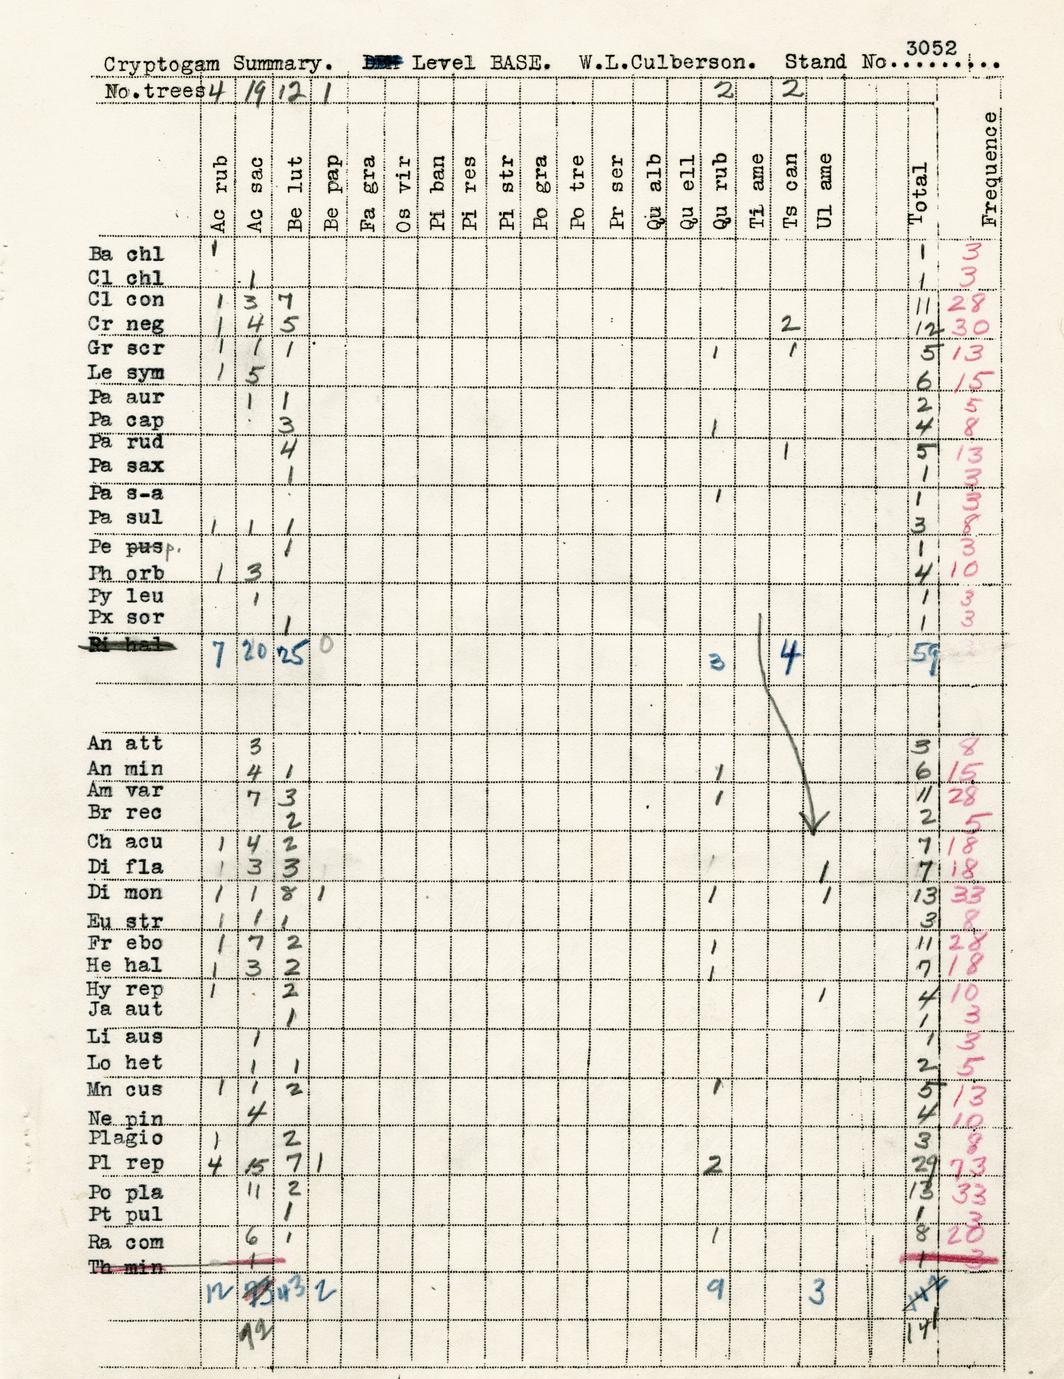 3052
Cryptogam Summary. Level BASE. W.L.Culberson. Stand No..........
No.trees 4 19 12 1 2 2
Ac rub Ac sac Be lut Be pap Fa gra Os vir Pi ban Pi res Pi str Po gra Po tre Pr ser Qu alb Qu ell Qu rub Ti ame Ts can Ul ame Total Frequence
Ba chl 1 1 3
Cl chl 1 1 3
Cl con 1 3 7 11 28
Cr neg 1 4 5 2 12 30
Gr scr 1 1 1 1 1 5 13
Le sym 1 5 6 15
Pa aur 1 1 2 5
Pa cap 3 1 4 8
Pa rud 4 1 5 13
Pa sax 1 1 3
Pa s-a 1 1 3
Pa sul 1 1 1 3 8
Pe pusp. 1 1 3
Ph orb 1 3 4 10
Py leu 1 1 3
Px sor 1 1 3
Ri hal 7 20 25 0 3 4 59
An att 3 3 8
An min 4 1 1 6 15
Am var 7 3 1 11 28
Br rec 2 2 5
Ch acu 1 4 2 7 18
Di fla 1 3 3 1 7 18
Di mon 1 1 8 1 1 1 13 33
Eu str 1 1 1 3 8
Fr ebo 1 7 2 1 11 28
He hal 1 3 2 1 7 18
Hy rep 1 2 1 4 10
Ja aut 1 1 3
Li aus 1 1 3
Lo het 1 1 2 5
Mn cus 1 1 2 1 5 13
Ne pin 4 4 10
Plagio 1 2 3 8
Pl rep 4 15 7 1 2 29 73
Po pla 11 2 13 33
Pt pul 1 1 3
Ra com 6 1 1 8 20
Th min 1 1 3
12 43 2 9 3
72 141